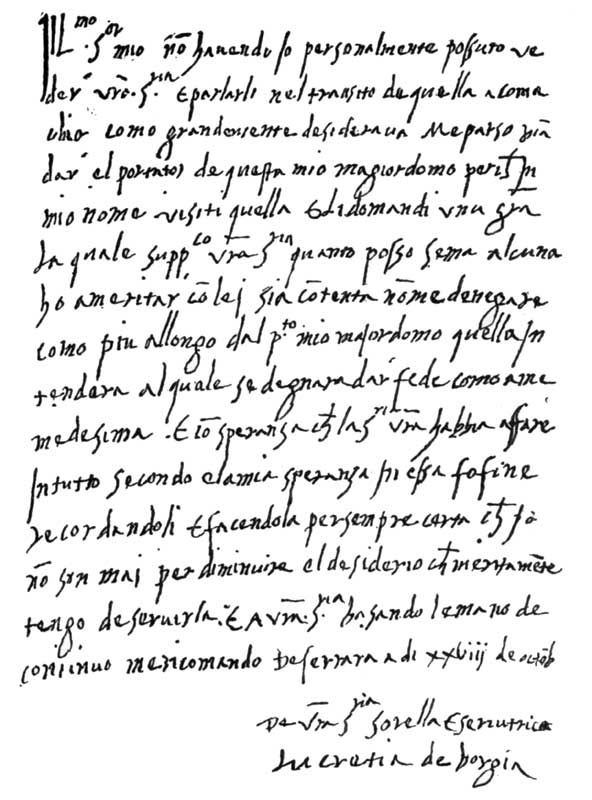 Ill.mo S.or mio nō hauendo Io personalmente possuto ve
der' vrā. S.ria E parlarli nel transito de quella a coma
chio como grandemente desideraua Me parso
dar' el de questa mio magiordomo In
mio nome visiti quella E li domandi vna gra
La quale supp.co vrā S.ria quanto posso sema alcuna
ho a meritar cō lej sia cōtenta nō me denegare
como piu allongo dal p.to mio majordomo quella In
tendera al quale se degnara dar' fede como a me
medesima . E cō speranza la S.ria vrā habba affare
In tutto secondo e la mia speranza In essa fo fine
recordandoli E facendola per sempre certa Io
nō son maj per diminuire el desiderio meritamēte
tengo de seruirla. E A vrā. S.ria basando le mano de
continuo me ricomando De ferrara a di xxviij de octōb
De vrā S.ria Sorella E seruitrice
Lucretia de borgia